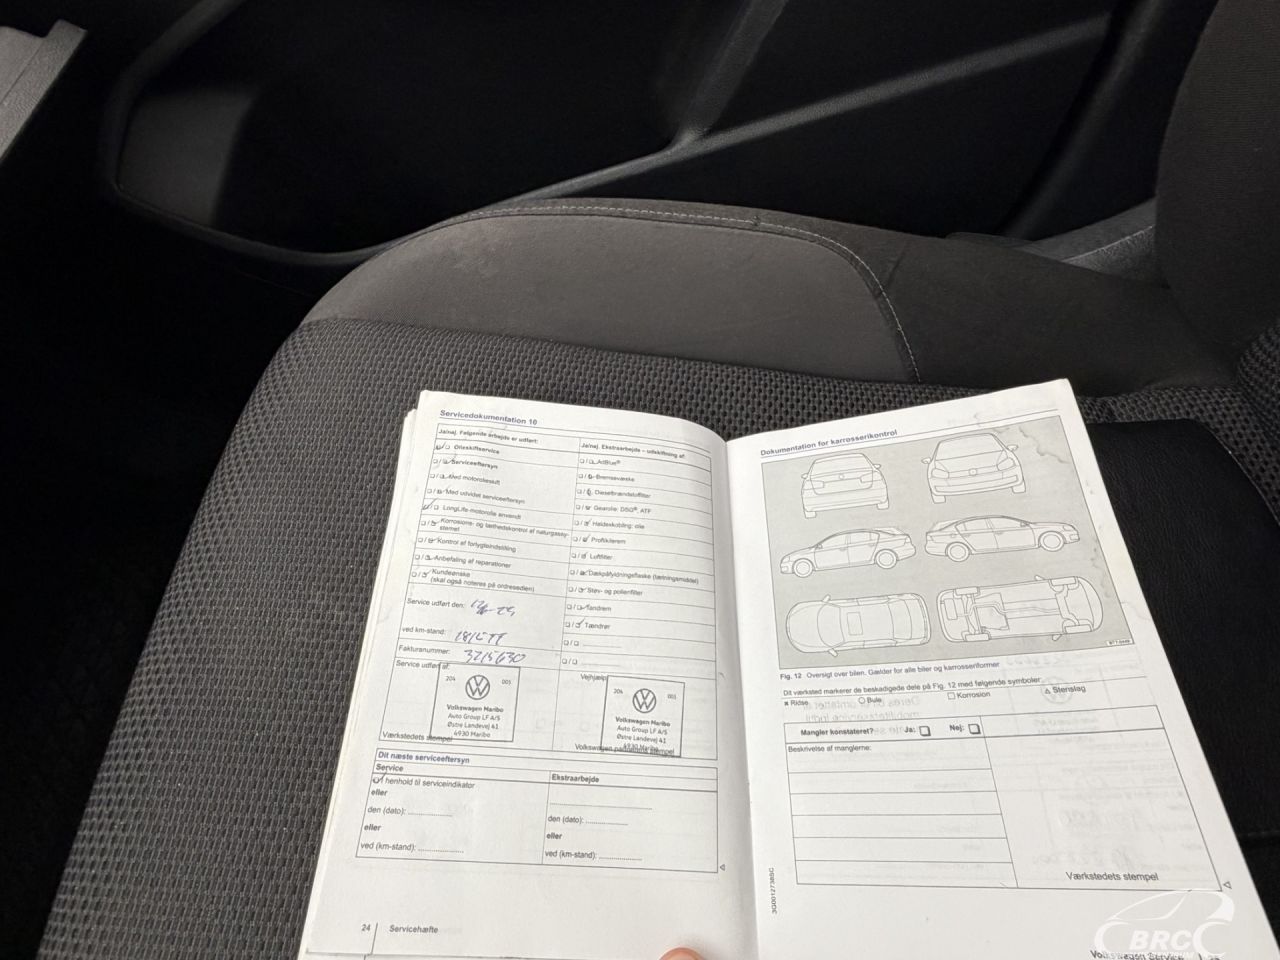 Servicedokumentation 10
Ja/nej. Følgende arbejde er udført:
Olieskiftservice
Serviceeftersyn
Med motorolieskift
Med udvidet serviceeftersyn
LongLife-motorolie anvendt
Korrosions- og tæthedskontrol af naturgassy-
stemet
Kontrol af forlygteindstilling
Anbefaling af reparationer
Kundeønske
(skal også noteres på ordresedlen)
Ja/nej. Ekstraarbejde – udskiftning af:
AdBlue®
Bremsevæske
Dieselbrændstoffilter
Gearolie: DSG®, ATF
Haldexkobling: olie
Profilkilerem
Luftfilter
Dækpåfyldningsflaske (tætningsmiddel)
Støv- og pollenfilter
Tandrem
Tændrør
Service udført den:
ved km-stand:
Fakturanummer: 3215630
Service udført af:
204 003
Volkswagen Maribo
Auto Group LF A/S
Østre Landevej 41
4930 Maribo
Værkstedets stempel
Vejhjælp
204 003
Volkswagen Maribo
Auto Group LF A/S
Østre Landevej 41
4930 Maribo
Volkswagen partnerens stempel
Dit næste serviceeftersyn
Service
I henhold til serviceindikator
eller
den (dato):
eller
ved (km-stand):
Ekstraarbejde
den (dato):
eller
ved (km-stand):
24 Servicehæfte
Dokumentation for karrosserikontrol
Fig. 12 Oversigt over bilen. Gælder for alle biler og karrosseriformer
Dit værksted markerer de beskadigede dele på Fig. 12 med følgende symboler:
Ridse Bule Korrosion Stenslag
Mangler konstateret? Ja: Nej:
Beskrivelse af manglerne:
Værkstedets stempel
3G0012738SC
Volkswagen Service
BRC